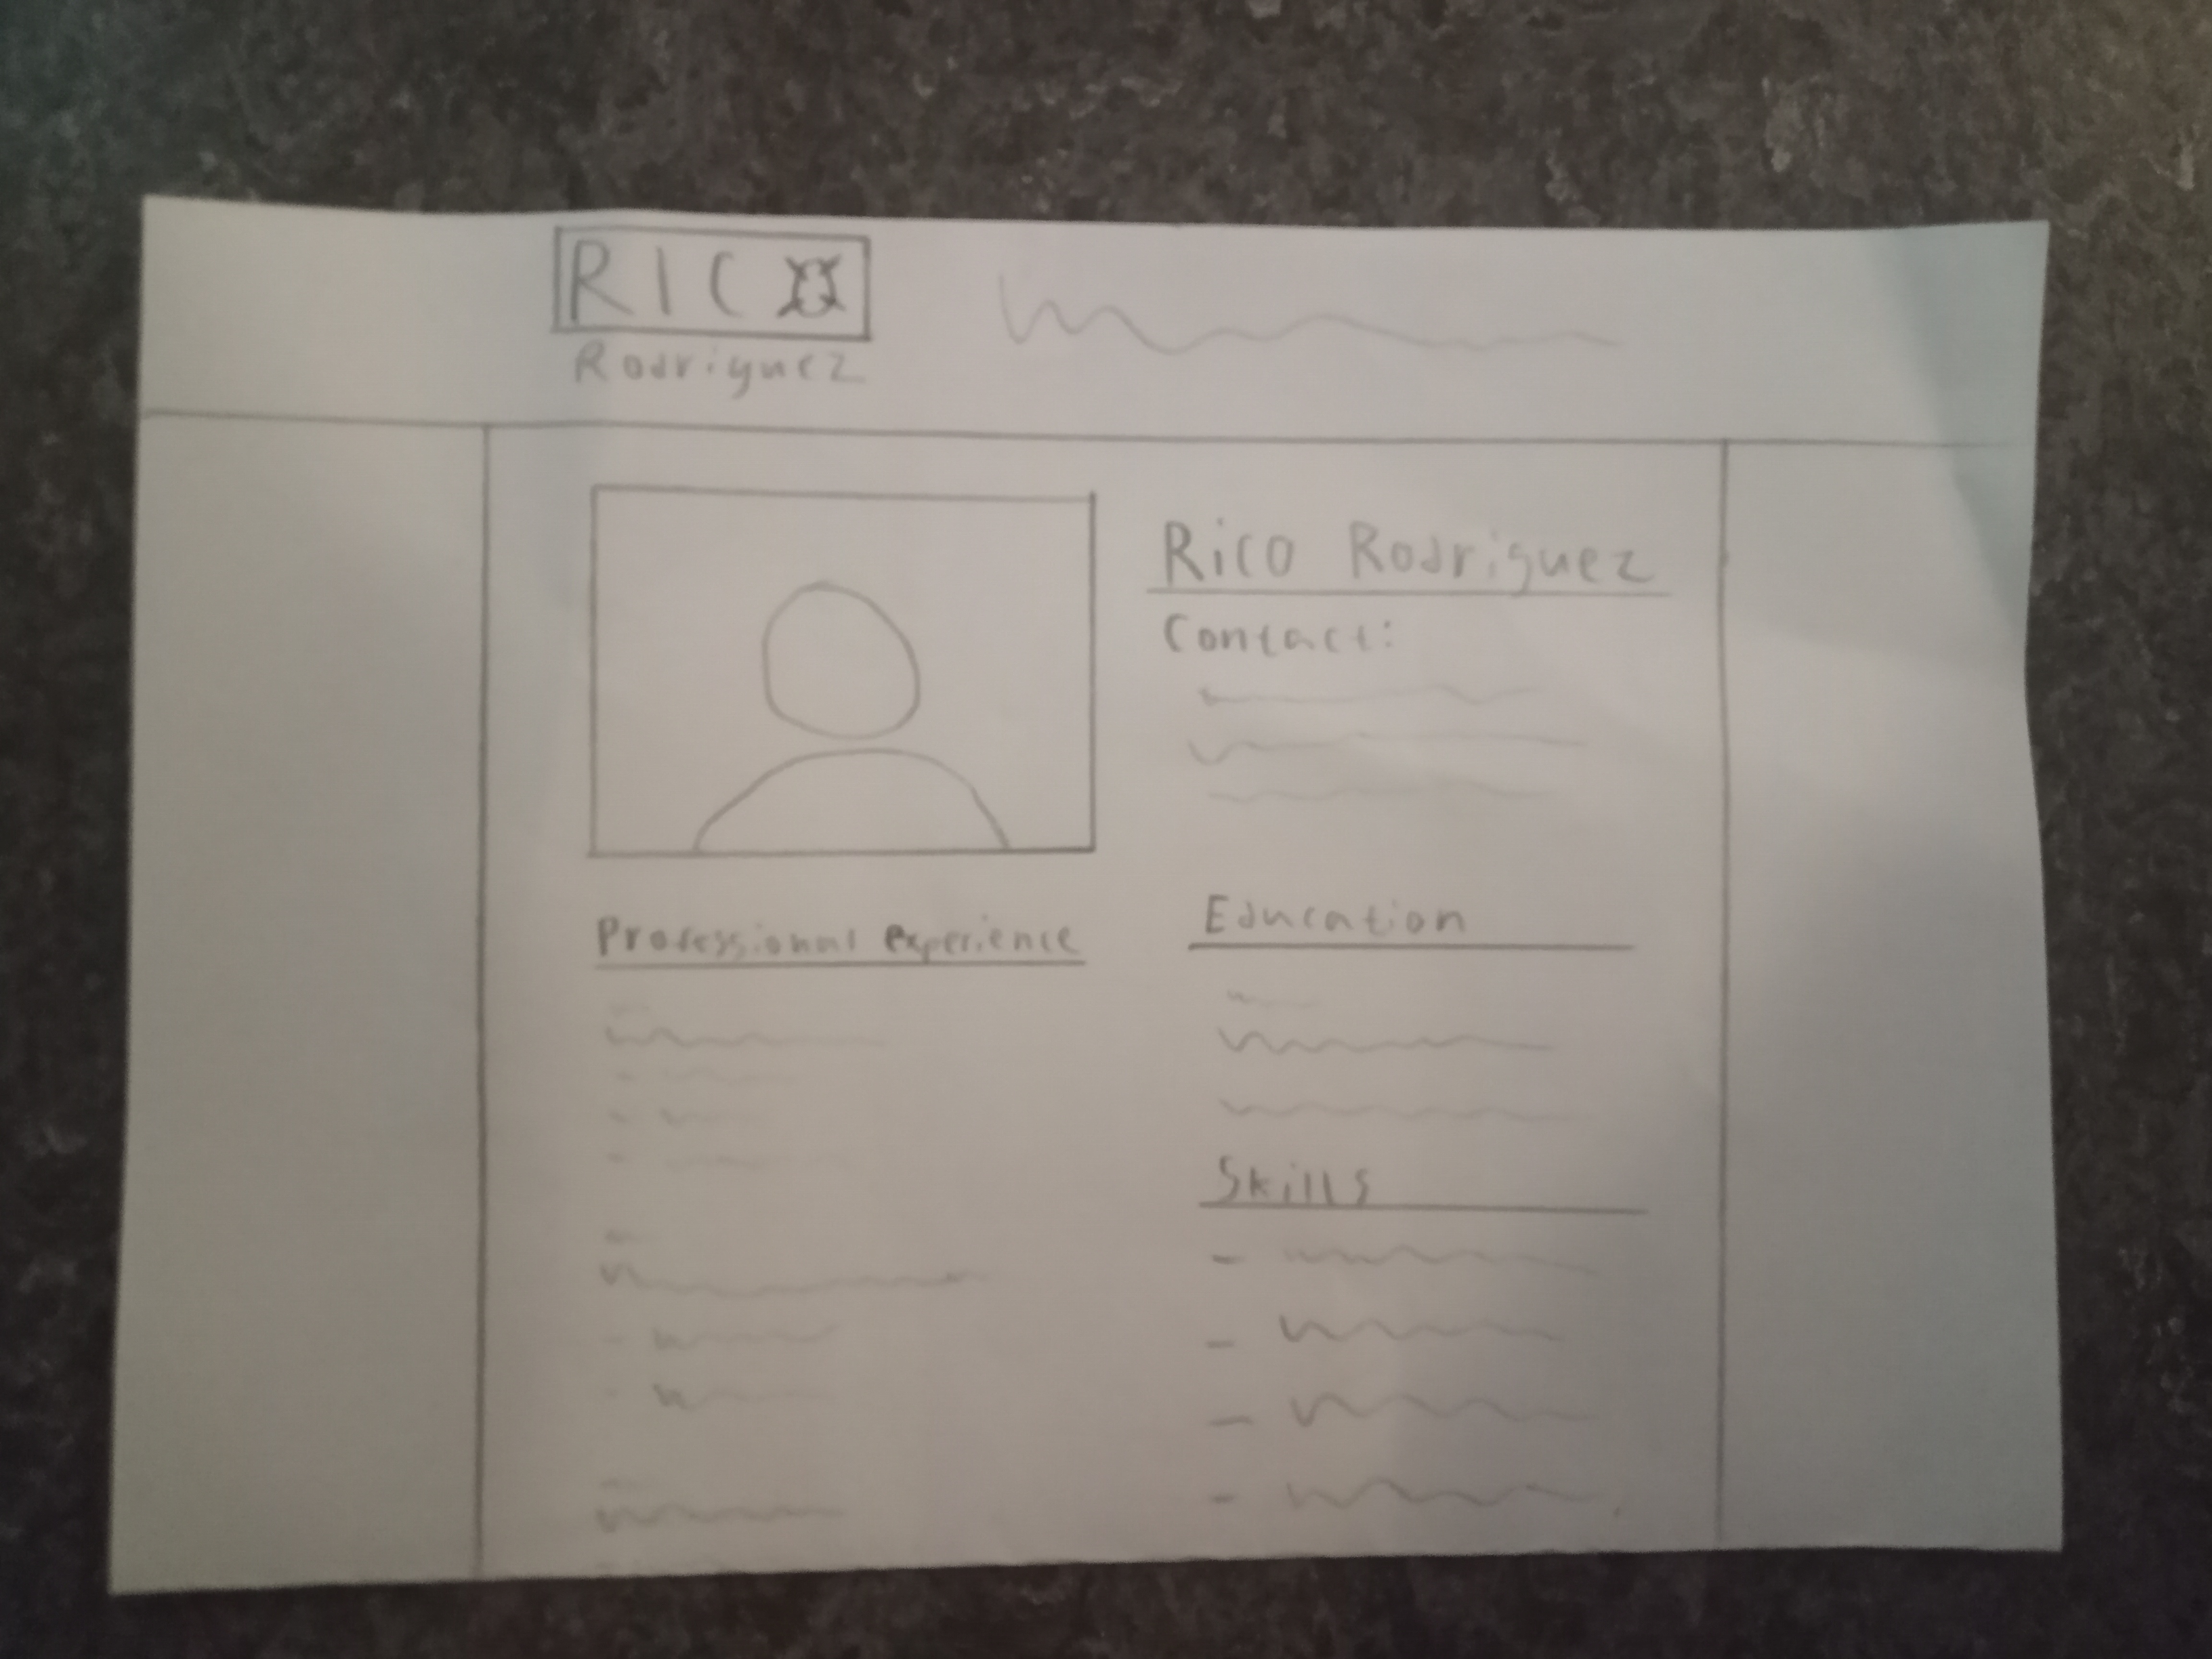 RICO
Rodriguez
Rico Rodriguez
Contact:
Professional experience
Education
Skills